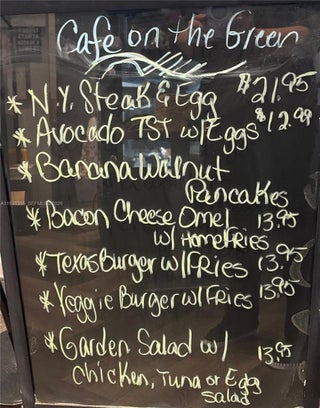 Cafe on the Green
* N.Y. Steak & Egg $21.95
* Avocado TST w/Eggs $12.99
* Banana Walnut
Pancakes
* Bacon Cheese Omel 13.95
w/ Homefries
* Texas Burger w/ Fries 13.95
* Veggie Burger w/ Fries 13.95
* Garden Salad w/ 13.95
Chicken, Tuna or Egg
Salad